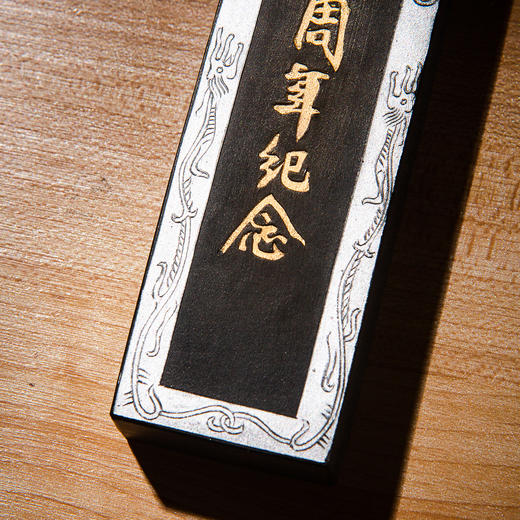 周年纪念